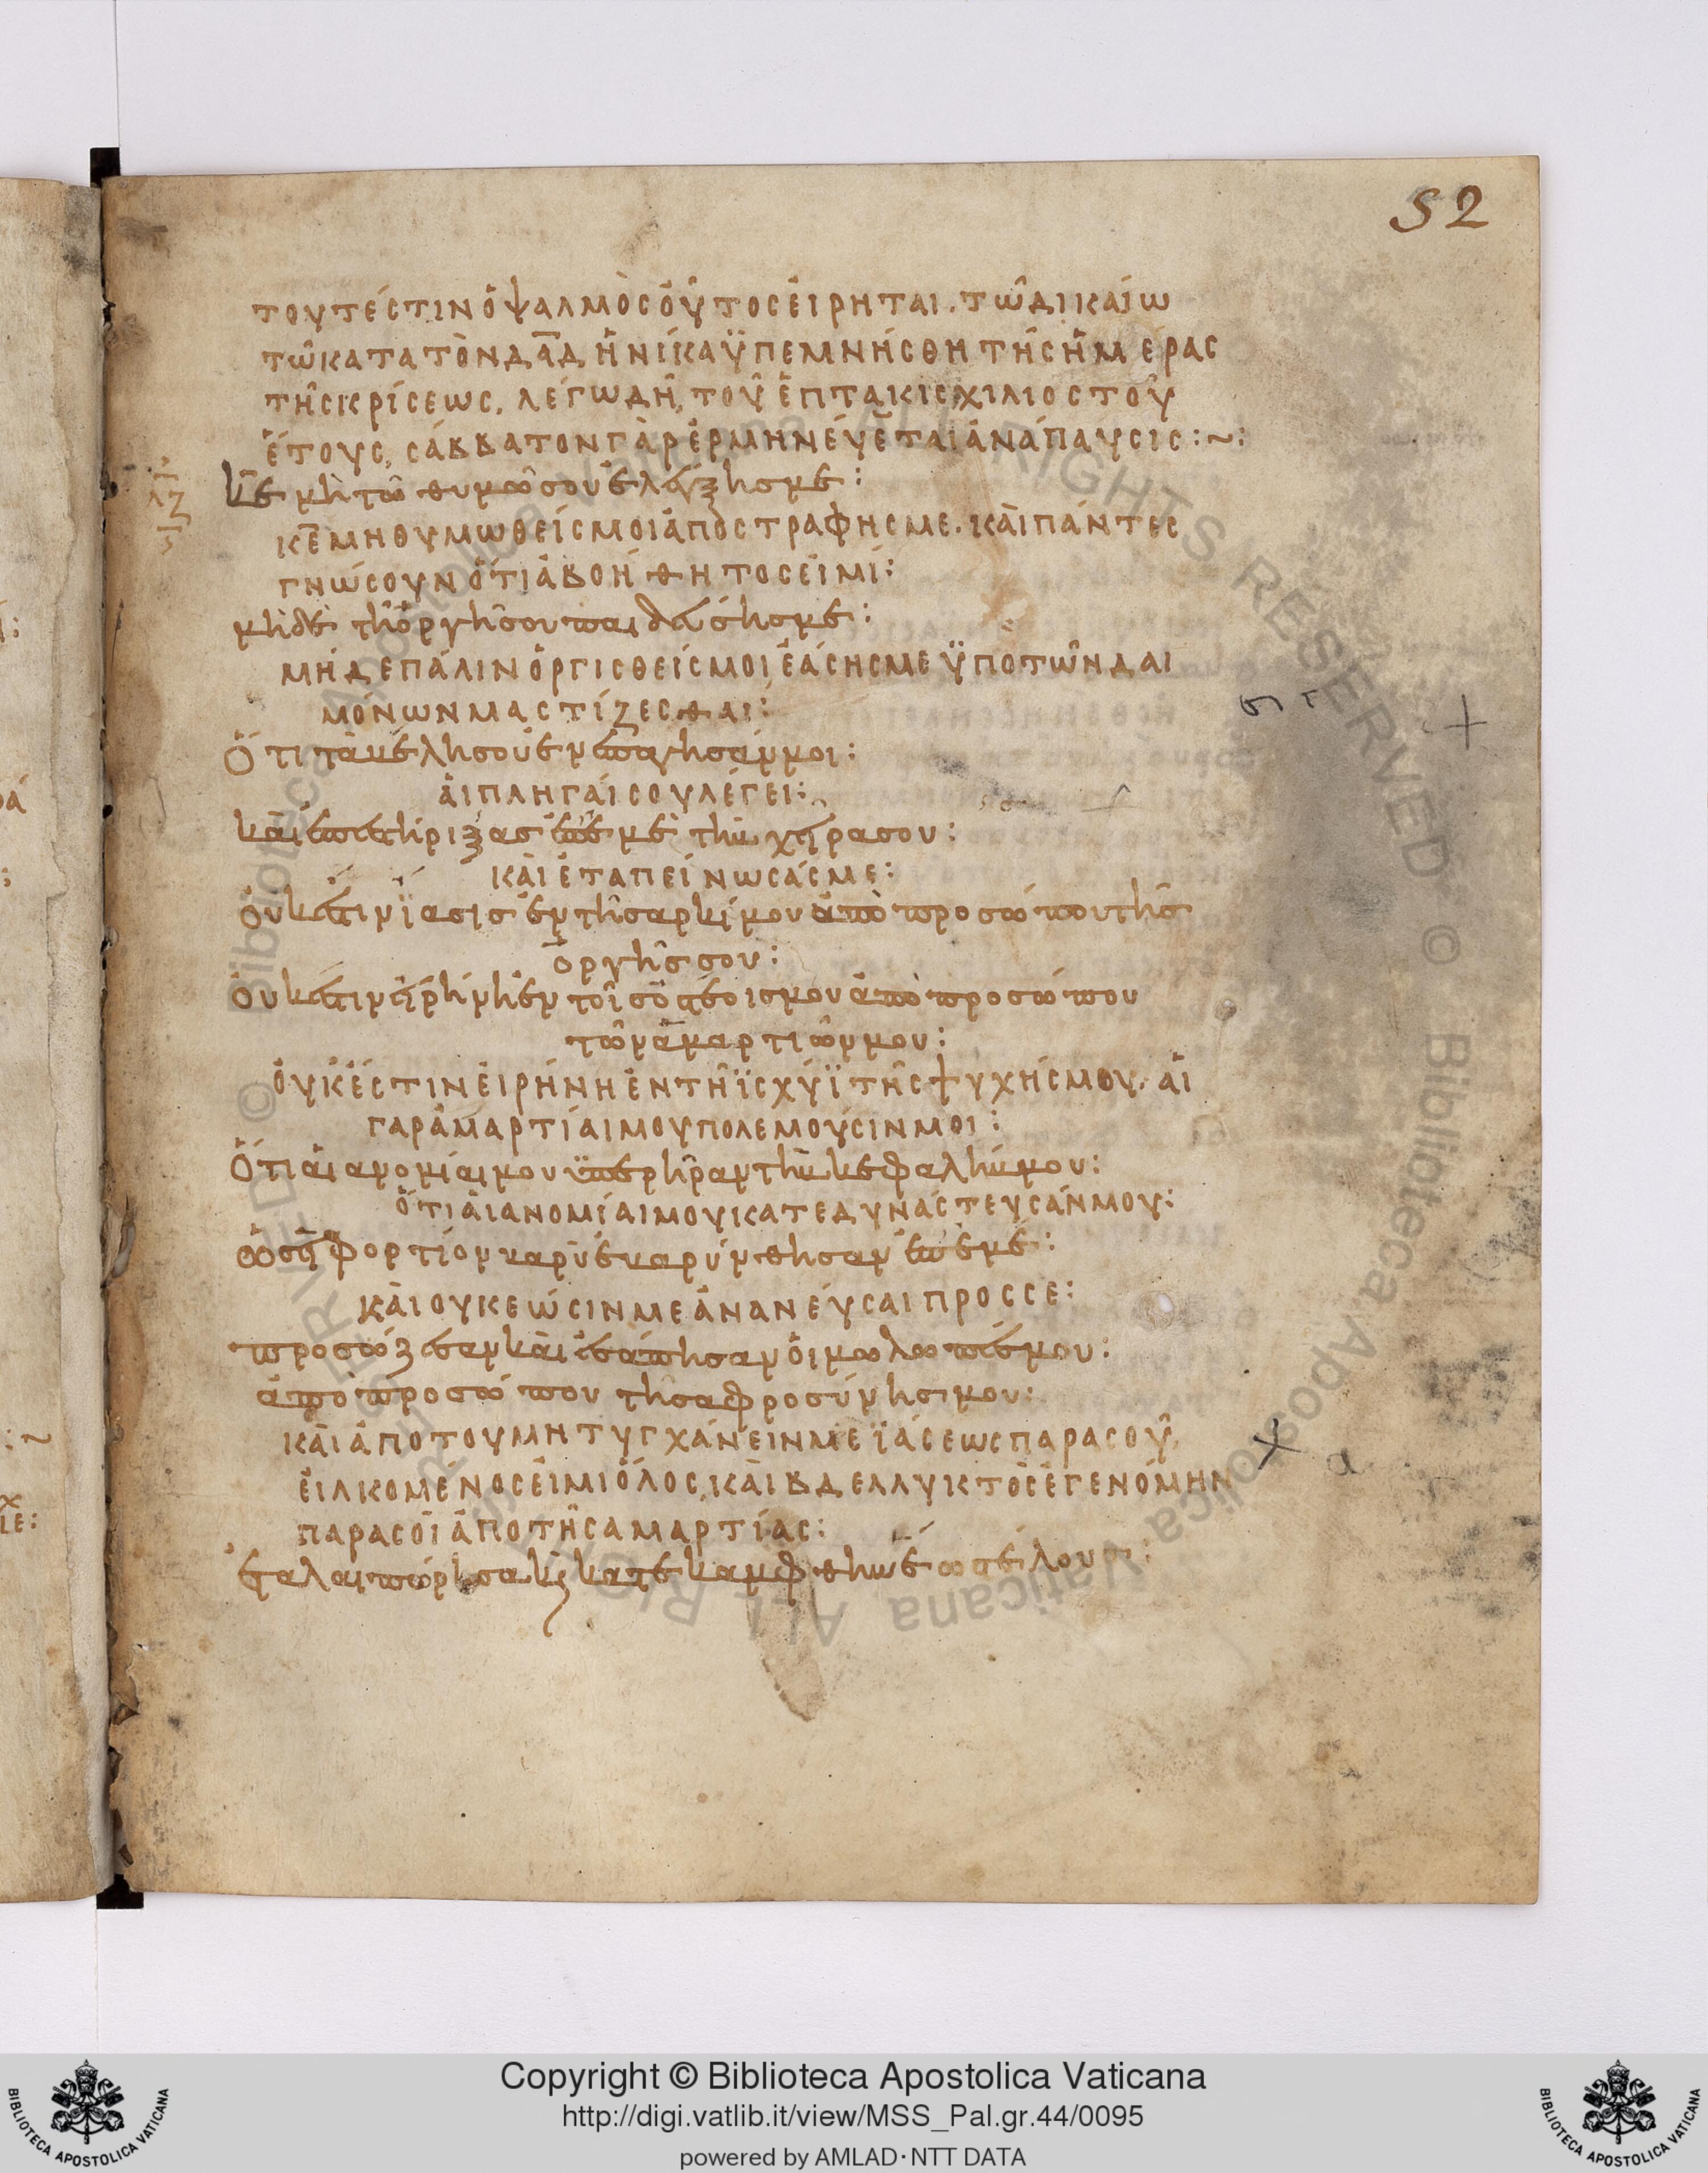 52
τουτέστιν ὁ ψαλμὸς οὗτος εἴρηται. τῶ δικαίω
τῶ κατὰ τὸν δᾱδ ἡνίκα ὑπεμνήσθη τῆς ἡμέρας
τῆς κρίσεως, λέγω δὴ, τοῦ ἑπτακισχιλιοστοῦ
ἔτους, σάββατον γὰρ ἑρμηνεύεται ἀνάπαυσις :~:
κ̄ε μὴ τῶ θυμῶ σου ἐλέγξησ με :
κ̄ε μὴ θυμωθείς μοι ἀποστραφῆς με. καὶ πάντες
γνώσουν ὅτι ἀβοήθητος εἰμί :
μὴδὲ τῆ ὀργῆ σου παιδεύσησ με :
μήδε πάλιν ὀργισθείς μοι ἐάσης με ὑπὸ τῶν δαι
μόνων μαστίζεσθαι :
Ὅτι τὰ βέλη σου ἐνεπάγησάν μοι :
αἱ πληγαί σου λέγει :
καὶ ἐπεστήριξας ἐπ' ἐμὲ τὴν χεῖρα σου :
καὶ ἐταπείνωσάς με :
Οὐκ ἔστιν ἴασις ἐν τῆ σαρκί μου ἀπὸ προσώπου τῆς
ὀργῆς σου :
Οὐκ ἔστιν εἰρήνη ἐν τοῖς ὀστέοις μου ἀπὸ προσώπου
τῶν ἁμαρτιῶν μου :
οὐκ ἔστιν εἰρήνη ἐν τῆ ἰσχύϊ τῆς ψυχῆς μου. αἱ
γὰρ ἁμαρτίαι μου πολεμοῦσιν μοι :
Ὅτι αἱ ανομίαι μου ὑπερῆραν τὴν κεφαλήν μου :
ὅτι αἱ ανομίαι μου κατεδυνάστευσάν μου :
ὡσεὶ φορτίον βαρὺ ἐβαρύνθησαν ἐπ' ἐμέ :
καὶ ουκ εῶσιν με ἀνανεύσαι προς σε :
προσώζεσαν καὶ ἐσάπησαν οἱ μώλωπές μου :
ἀπὸ προσώπου τῆς αφροσύνης μου :
καὶ ἀπὸ του μὴ τυγχάνειν με ἰάσεως παρὰ σοῦ,
εἱλκομένος εἰμι ὅλος, καὶ βδελλυκτὸς ἐγενόμην
παρὰ σοὶ ἀπὸ τῆς αμαρτίας :
ἐταλαιπώρησα κ̀ κατεκάμφθην ἕως τέλους :
Copyright © Biblioteca Apostolica Vaticana
http://digi.vatlib.it/view/MSS_Pal.gr.44/0095
powered by AMLAD·NTT DATA